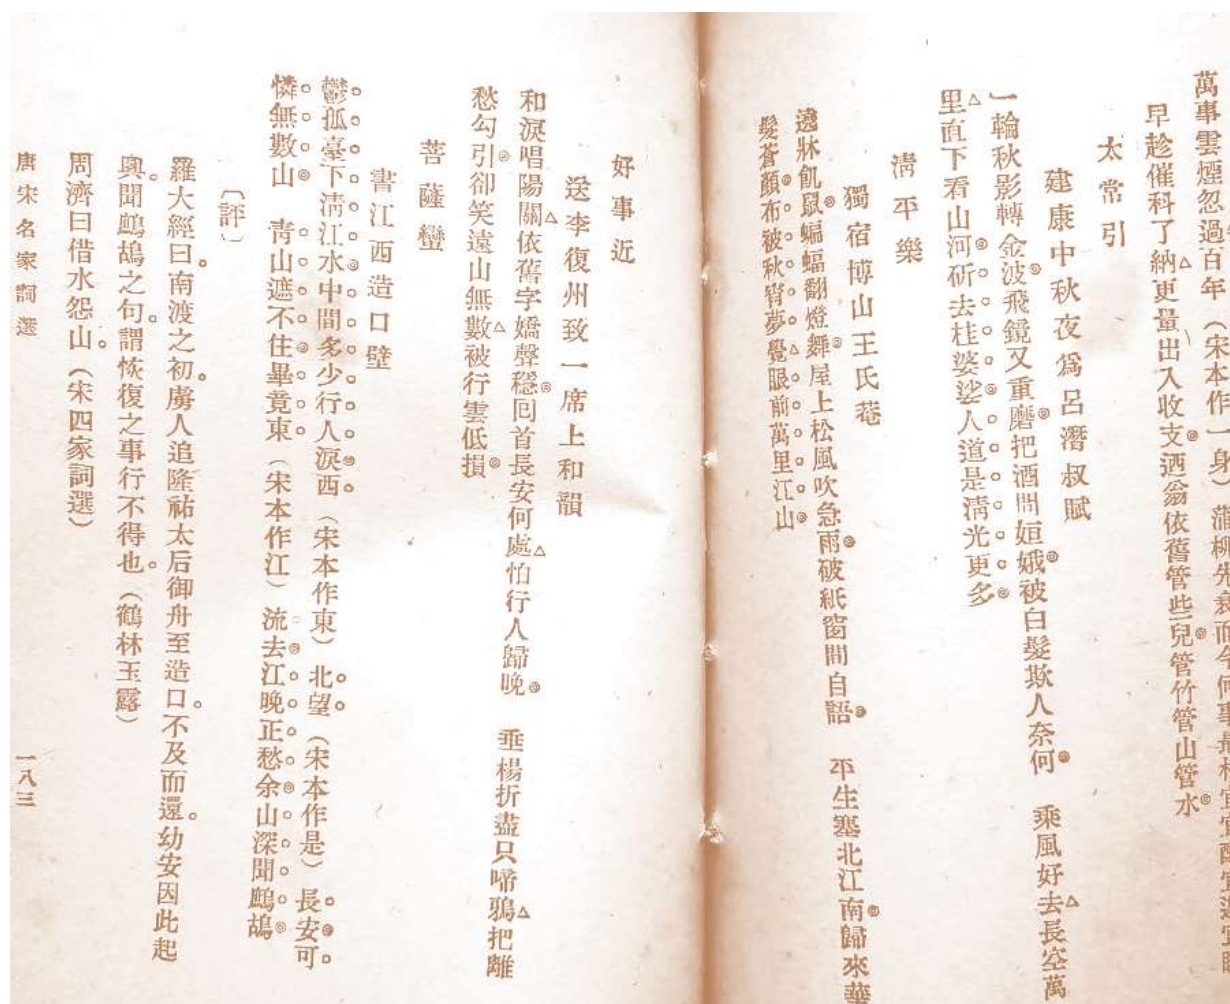 萬事雲煙忽過百年(宋本作一身)蒲柳先衰而今何事最相宜宜醉宜遊宜睡
早趁催科了納更量出入收支迺翁依舊管些兒管竹管山管水
太常引
建康中秋夜爲呂潛叔賦
一輪秋影轉金波飛鏡又重磨把酒問姮娥被白髮欺人奈何 乘風好去長空萬
里直下看山河斫去桂婆娑人道是清光更多
淸平樂
獨宿博山王氏菴
遶牀飢鼠蝙蝠翻燈舞屋上松風吹急雨破紙窗間自語 平生塞北江南歸來華
髮蒼顏布被秋宵夢覺眼前萬里江山
好事近
送李復州致一席上和韻
和淚唱陽關依舊字嬌聲穩回首長安何處怕行人歸晚 垂楊折盡只啼鴉把離
愁勾引卻笑遠山無數被行雲低損
菩薩蠻
書江西造口壁
鬱孤臺下淸江水中間多少行人淚西(宋本作東)北望(宋本作是)長安可
憐無數山 靑山遮不住畢竟東(宋本作江)流去江晚正愁余山深聞鷓鴣
〔評〕
羅大經曰南渡之初。虜人追隆祐太后御舟至造口。不及而還。幼安因此起
興。聞鷓鴣之句。謂恢復之事行不得也。(鶴林玉露)
周濟曰借水怨山。(宋四家詞選)
唐宋名家詞選
一八三